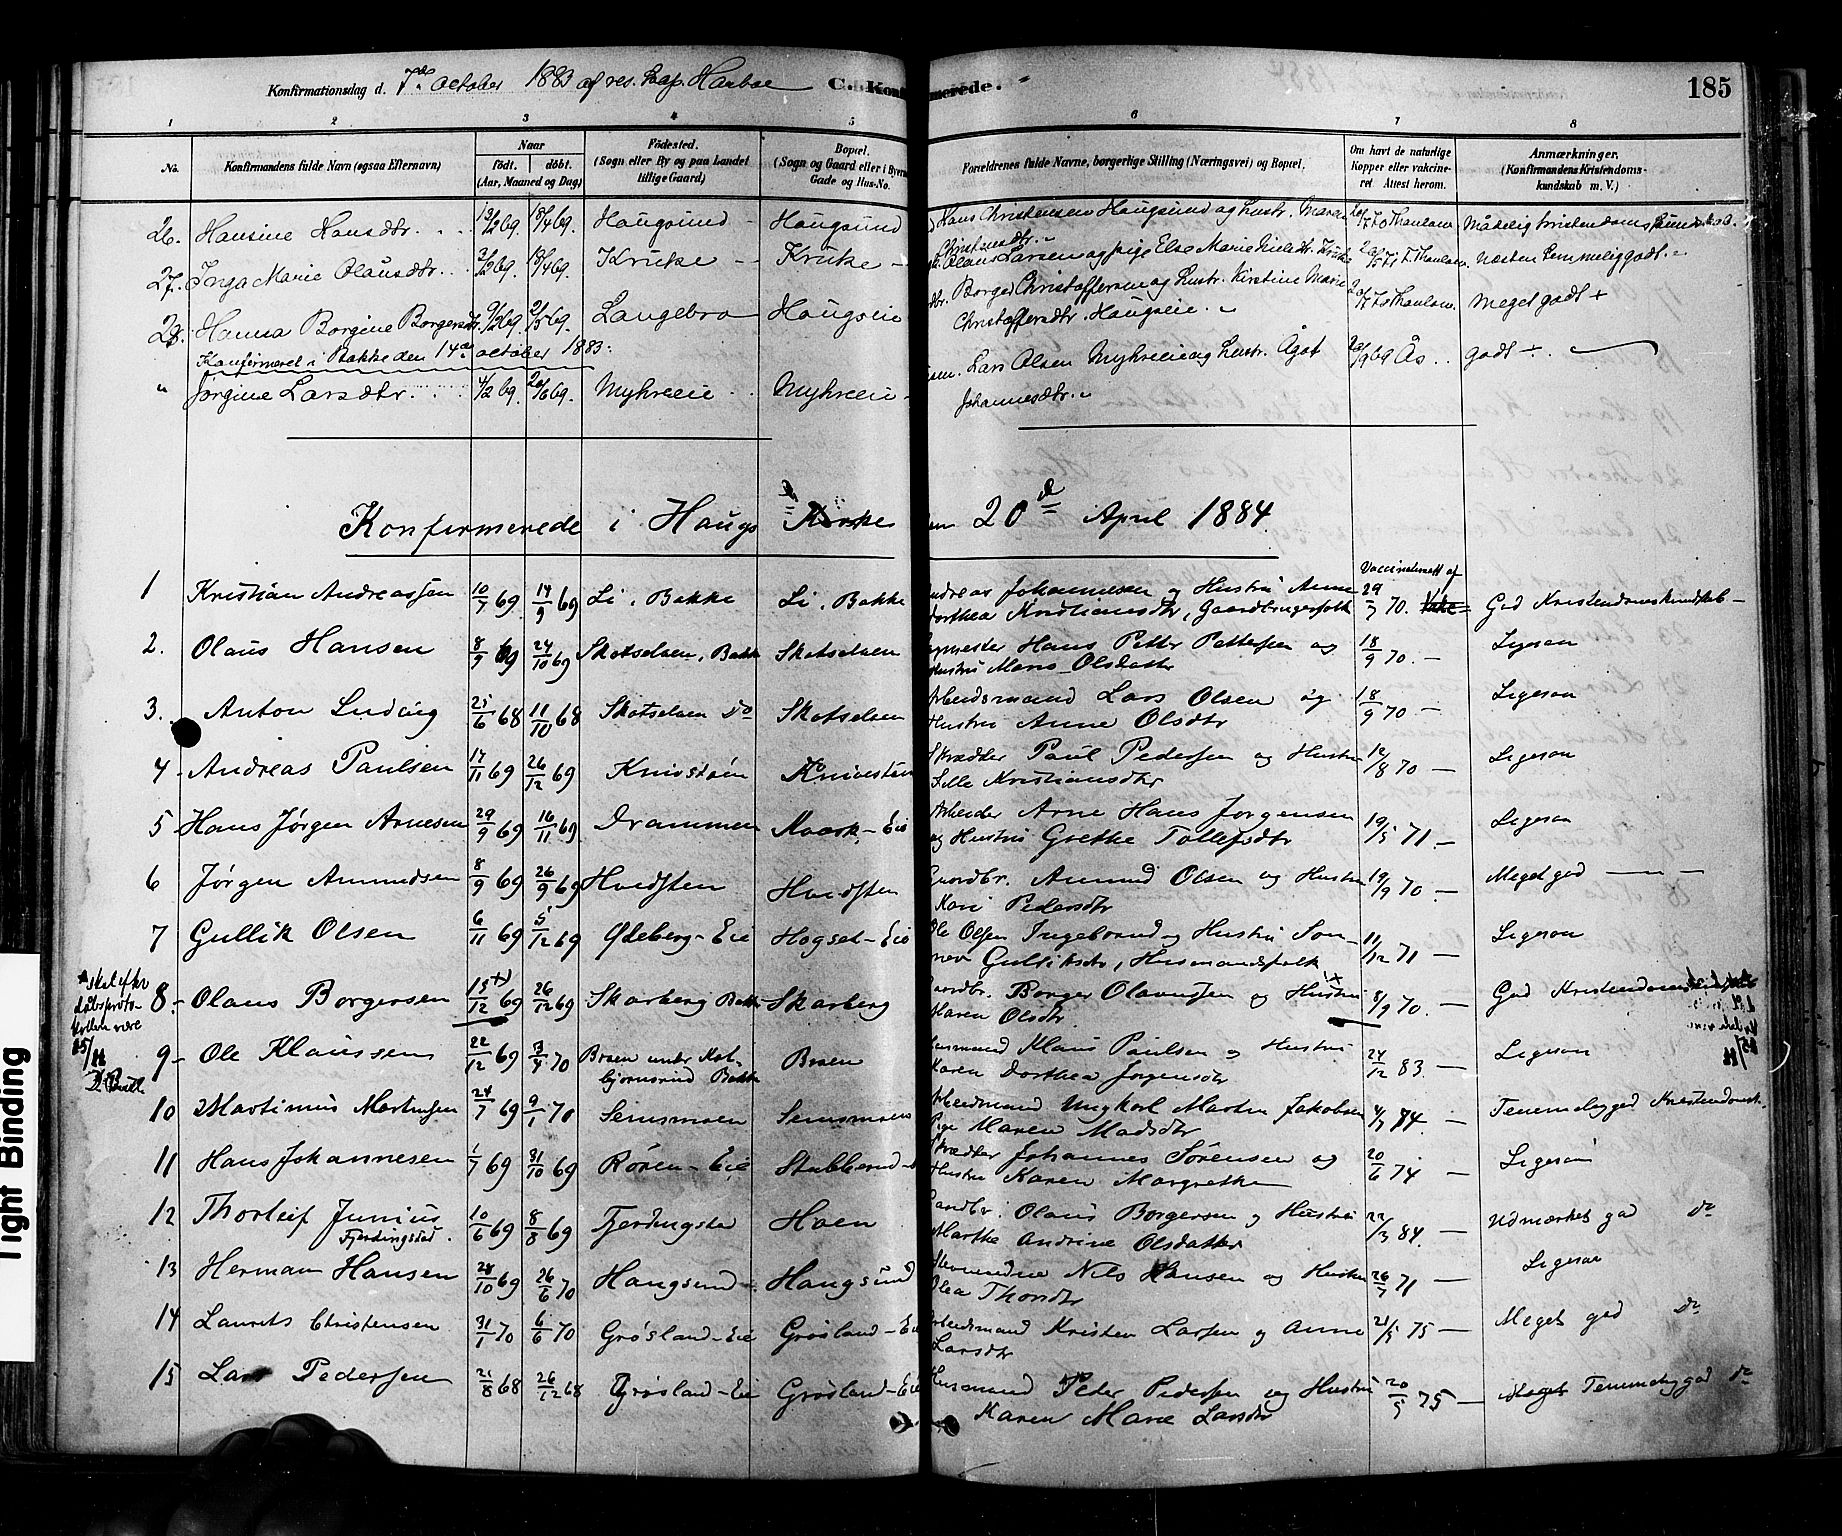 Konfirmationsdag d. 7de October 1883 af res. Cap. C. Konfirmerede. 185
1 2 3 4 5 6 7 8
No. Konfirmandens fulde Navn (ogsaa Efternavn) Naar født. døbt. (Aar, Maaned og Dag) Fødested. (Sogn eller By og paa Landet tillige Gaard) Bopæl. (Sogn og Gaard eller i Byerne Gade og Hus-No. Forældrenes fulde Navne, borgerlige Stilling (Næringsvei) og Bopæl. Om havt de naturlige Kopper eller vakcineret Attest herom. Anmærkninger. (Konfirmandens Kristendomskundskab m. V.)
26. Hansine Hansdtr. 13/2 69. 18/4 69. Haugsund Haugsund Hans Christensen Haugsund og Hustr. Maren
Christensdtr. 20/7 70 Thaulow. Mådelig kristendomskundskab.
27. Inga Marie Olausdtr. 3/2 69. 18/4 69. Kruke Kruke Olaus Larsen og pige Else Marie Nielsdtr. Kruke 71 F. Thaulow. Næsten temmelig godt.
28. Hanna Borgine Borgersdtr. 9/2 69. 2/5 69. Langebro Haugseie Borger Christoffersen og Hustr. Kirstine Marie
Christoffersdtr. Haugseie. 70 Thaulow. Meget godt +
Konfirmeret i Bakke den 14de october 1883:
" Jørgine Larsdtr. 4/2 69. 20/6 69. Myhreeie Myhreeie Lars Olsen Myhreeie og Hustr. Ågot
Johannesdtr. 20/9 69 Ås. godt +.
Konfirmerede i Haugs Kirke den 20de April 1884.
Vaccinationsatt af
1 Kristian Andreassen 10/7 69 19/9 69 Li, Bakke Li, Bakke Andreas Johannesen og Hustru Anne
Dorthea Kristiansdtr, Gaardbrugerfolk 29/7 70. God Kristendomskundskab
2. Olaus Hansen 8/9 69 24/10 69 Skotselven, Bakke Skotselven Hans Petter Pettersen og
Hustru Maris Olsdatr 18/9 70. Ligesaa
3. Anton Ludvig 25/6 68 11/10 68 Skotselven Do Skotselven Arbeidsmand Lars Olsen og
Hustru Anne Olsdtr 18/9 70. Ligesaa
4 Andreas Paulsen 17/11 69 26/12 69 Knivstøen Knivestøen Skrædder Paul Pedersen og Hustru
Lille Kristiansdtr 12/8 70 Ligesaa
5 Hans Jørgen Arnesen 29/9 69 16/11 69. Drammen Eie Arbeider Arne Hans Jørgensen
og Hustru Grethe Tollefsdtr 19/5 71. Ligesaa
6 Jørgen Amundsen 8/9 69 26/9 69 Hvidsten Hvidsten Gaardbr. Amund Olsen og Hustru
Kari Pedersdtr 19/9 70 Meget god
7 Gullik Olsen 6/11 69 5/12 69 Ødeberg-Eie Hogset-Eie Ole Olsen Ingebrand og Hustru
Gulliksdtr, Husmandsfolk 11/12 71 Ligesaa
skal efter daabsprotokollen være
8. Olaus Borgersen 15/12 69 26/12 69 Skarberg Bakke Skarberg Gaardbr. Borger Olaussen og Hustru
Maren Olsdtr. 8/9 70. God Kristendomskundskab
9 Ole Klaussen 22/12 69 3/4 70 Braen under Bakke Braen Husmand Klaus Paulsen og Hustru
Karen Dorthea Jørgensdtr 24/12 83. Ligesaa
10 Martinius Martinsen 24/7 69 9/1 70 Semsmoen Semsmoen Arbeidsmand Ungkarl Martin Jakobsen
Pige Maren Madsdtr 74. Temmelig god Kristendomsk.
11 Hans Johannesen 1/7 69 31/10 69 Røren-Eie Stubberud Skrædder Johannes Sørensen og
Hustru Karen Margrethe 20/6 74 Ligesaa
12 Thorleif Junius 10/6 69 8/8 69 Fjerdingstad Hoen Landbr. Olaus Borgersen og Hustru
Fjerdingstad. Marthe Andrine Olsdatter 22/3 84. Udmærket god do
13 Herman Hansen 28/10 69 26/6 70 Haugsund Haugsund Nils Hansen og Hustru
Olea Thorsdtr 26/7 71 Ligesaa
14 Laurits Christensen 31/1 70 6/6 70 Grøsland-Eie Grøsland-Eie Arbeidsmand Kristen Larsen og Anne
Larsdtr 21/5 75 Meget god do
15 Lars Pedersen 21/8 68 26/12 68 Grøsland-Eie Grøsland-Eie Husmand Peder Pedersen og Hustru
Karen Marie Larsdtr 20/5 75 Temmelig god do
Tight Binding